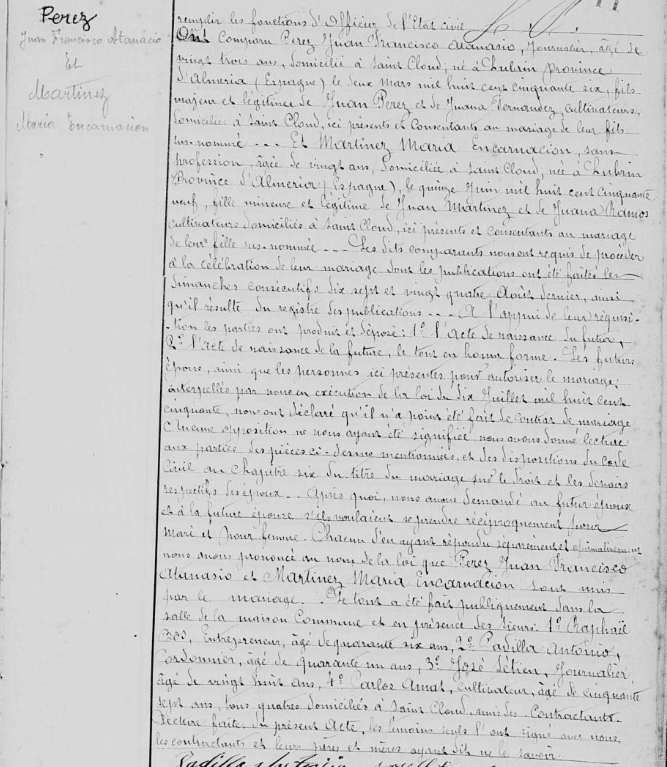 Perez
Juan Francisco Atanacio
Et
Martinez
Maria Encarnacion
remplir les fonctions d'Officier de l'Etat civil
Ont Comparu Perez Juan Francisco Atanasio, Journalier, âgé de
vingt trois ans, domicilié à Saint Cloud, né à Lubrin province
d'Almeria (Espagne) le deux Mars mil huit cent cinquante six, fils
majeur et légitime de Juan Perez et de Juana Fernandez, cultivateurs,
domiciliés à Saint Cloud, ici présents et Consentants au mariage de leur fils
sus-nommé - - - Et Martinez Maria Encarnacion, sans
profession, âgée de vingt ans, domiciliée à Saint Cloud, née à Lubrin
Province d'Almeria (Espagne), le quinze Juin mil huit cent cinquante
neuf, fille mineure et légitime de Juan Martinez et de Juana Ramos
cultivateurs domiciliés à Saint Cloud, ici présents et consentants au mariage
de leur fille sus-nommée - - - Les dits comparants nous ont requis de procéder
à la célébration de leur mariage dont les publications ont été faites les
Dimanches consécutifs dix sept et vingt quatre Août dernier, ainsi
qu'il résulte du registre des publications - - - A l'appui de leur réquisi-
tion les parties ont produit et déposé: 1° l'Acte de naissance du futur,
2° l'Acte de naissance de la future, le tout en bonne forme. Les futurs
époux, ainsi que les personnes ici présentes pour autoriser le mariage,
interpellés par nous en exécution de la loi du dix Juillet mil huit cent
cinquante, nous ont déclaré qu'il n'a point été fait de contrat de mariage
Aucune opposition ne nous ayant été signifiée nous avons donné lecture
aux parties des pièces ci-dessus mentionnées et des dispositions du code
Civil au Chapitre six du titre du mariage sur le droit et les devoirs
respectifs des époux - - Après quoi, nous avons demandé au futur époux
et à la future épouse s'ils voulaient se prendre réciproquement pour
mari et pour femme. Chacun d'eux ayant répondu séparément et affirmativement
nous avons prononcé au nom de la loi que Perez Juan Francisco
Atanasio et Martinez Maria Encarnacion sont unis
par le mariage. Le tout a été fait publiquement dans la
salle de la maison Commune et en présence des Sieurs: 1° Raphaël
Ros, Entrepreneur, âgé de quarante six ans, 2° Padilla Antonio,
Cordonnier, âgé de quarante un ans, 3° José Journalier,
âgé de vingt huit ans, 4° Carlos Amat, Cultivateur, âgé de cinquante
sept ans, tous quatre domiciliés à Saint Cloud, amis des Contractants.
Lecture faite du présent Acte, les témoins seuls l'ont signé avec nous
les contractants et leurs pères et mères ayant dit ne le savoir
Padilla Antonio